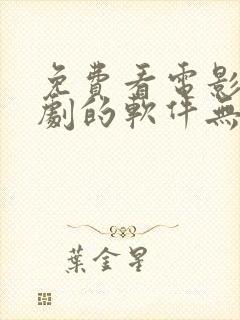 免費看電影
劇的軟件無
葉金星